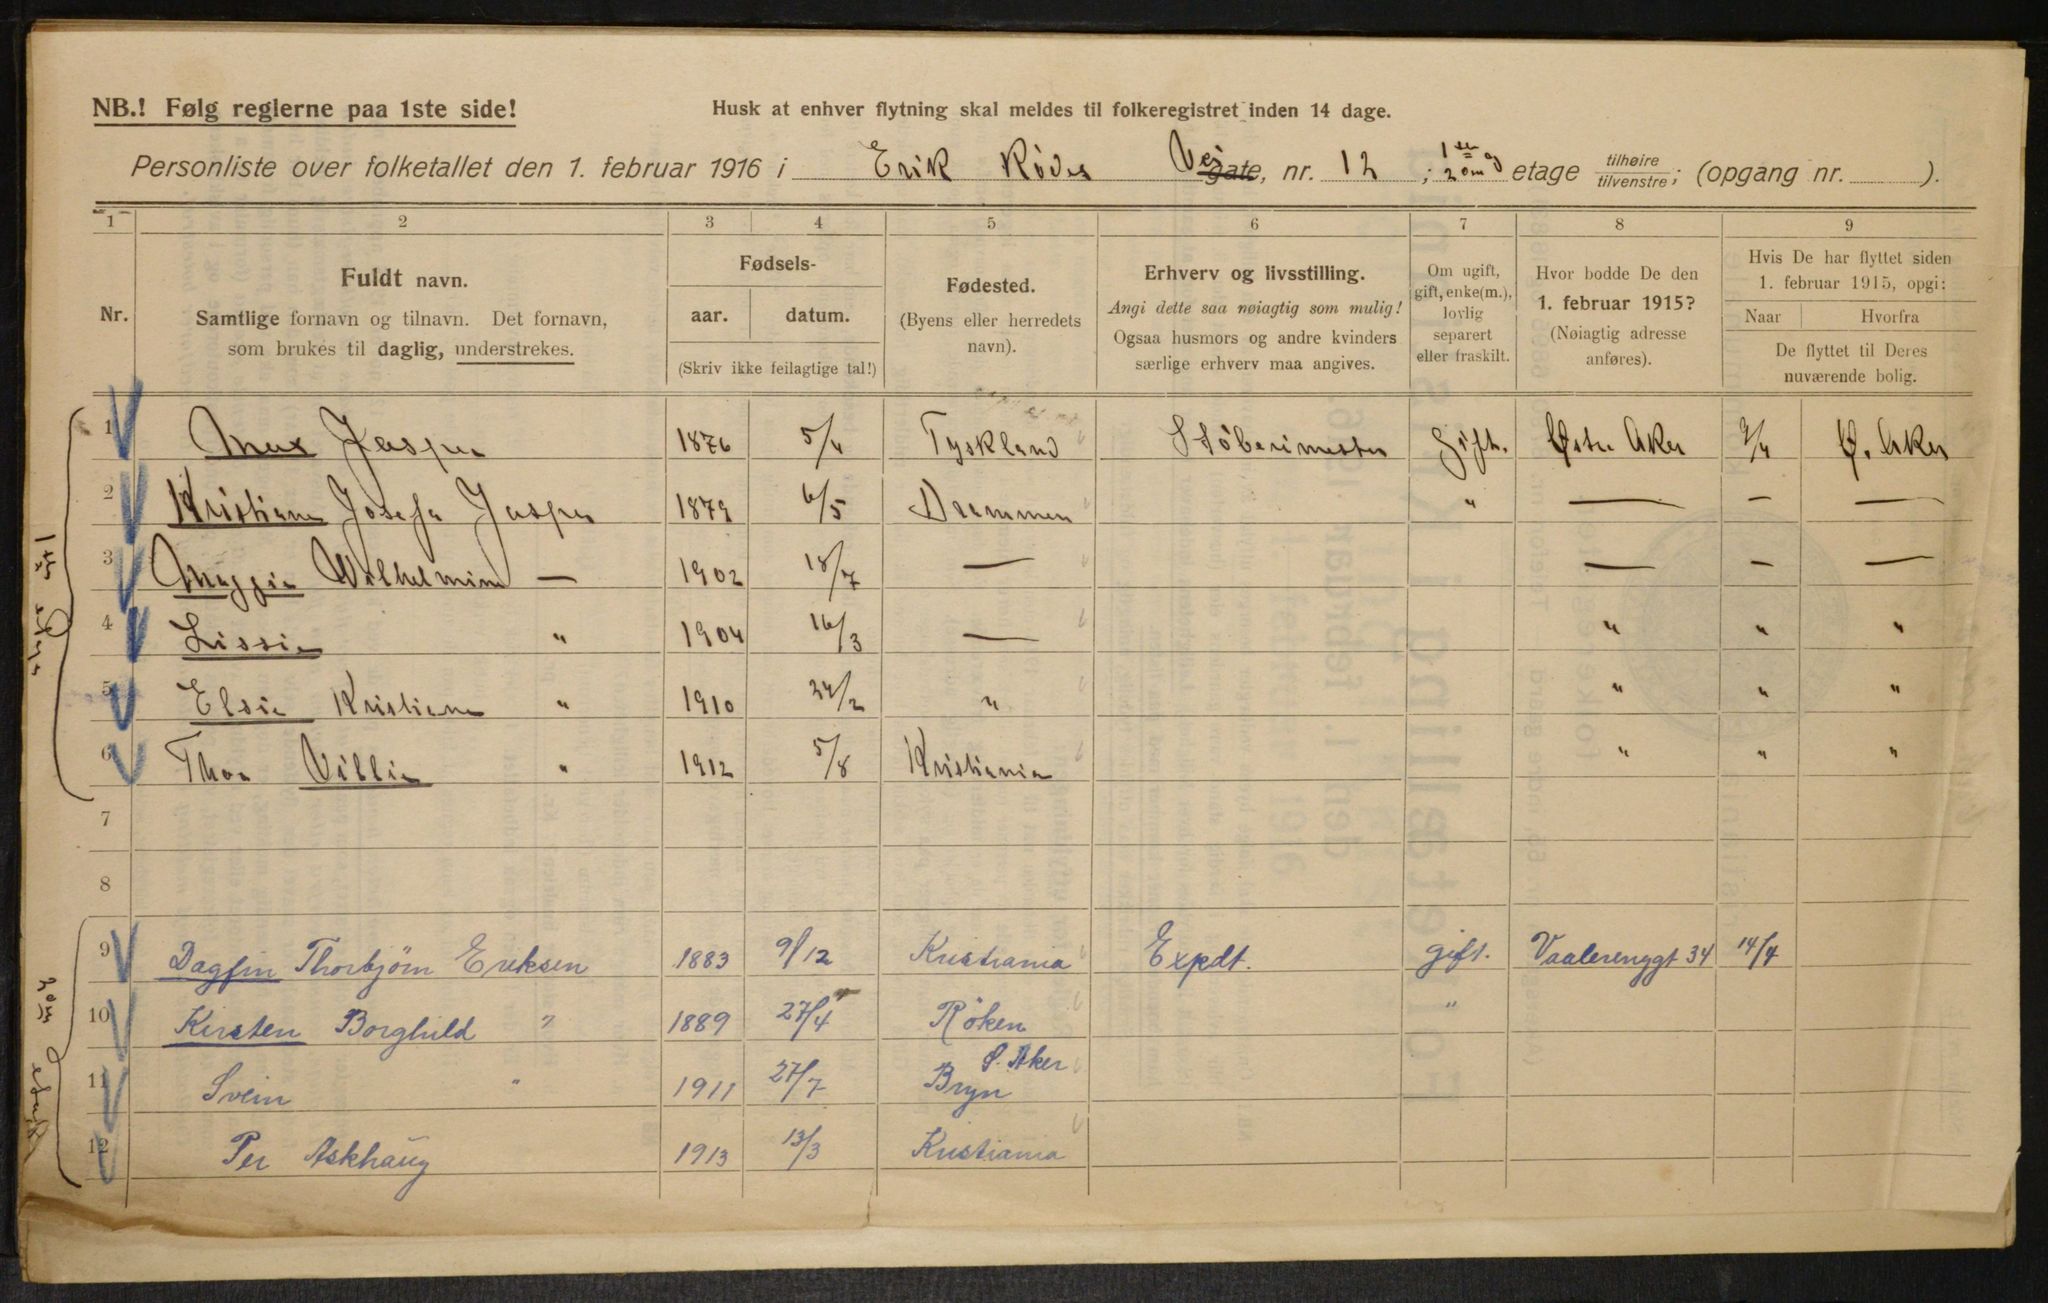 NB.! Følg reglerne paa 1ste side!
Husk at enhver flytning skal meldes til folkeregistret inden 14 dage.
Personliste over folketallet den 1. februar 1916 i Erik Rødes Vei gate, nr. 12 ; 1ste og 2den etage tilhøire/tilvenstre; (opgang nr. ).
1 2 3 4 5 6 7 8 9
Nr.
Fuldt navn.
Samtlige fornavn og tilnavn. Det fornavn,
som brukes til daglig, understrekes.
Fødsels-
aar. datum.
(Skriv ikke feilagtige tal!)
Fødested.
(Byens eller herredets
navn).
Erhverv og livsstilling.
Angi dette saa nøiagtig som mulig!
Ogsaa husmors og andre kvinders
særlige erhverv maa angives.
Om ugift,
gift, enke(m.),
lovlig
separert
eller fraskilt.
Hvor bodde De den
1. februar 1915?
(Nøiagtig adresse
anføres).
Hvis De har flyttet siden
1. februar 1915, opgi:
Naar Hvorfra
De flyttet til Deres
nuværende bolig.
1 Max Jasper 1876 5/4 Tyskland Støberimester Gift. Østre Aker 9/4 Ø. Aker
2 Kristiane Josefa Jasper 1879 6/5 Drammen " — — —
3 Maggie Wilhelmine — 1902 18/7 — — — —
4 Lissie " 1904 16/3 — " " "
5 Elsie Kristiane " 1910 24/2 " " " "
6 Thor Villie " 1912 5/8 Kristiania " " "
7
8
9 Dagfin Thorbjörn Eriksen 1883 9/12 Kristiania Expdt. gift. Vaalerenggt 34 14/4
10 Kirsten Borghild " 1889 27/4 Röken "
11 Svein " 1911 27/7 Bryn Ö. Aker
12 Per Askhaug 1913 13/3 Kristiania
1ste etage
2den etage